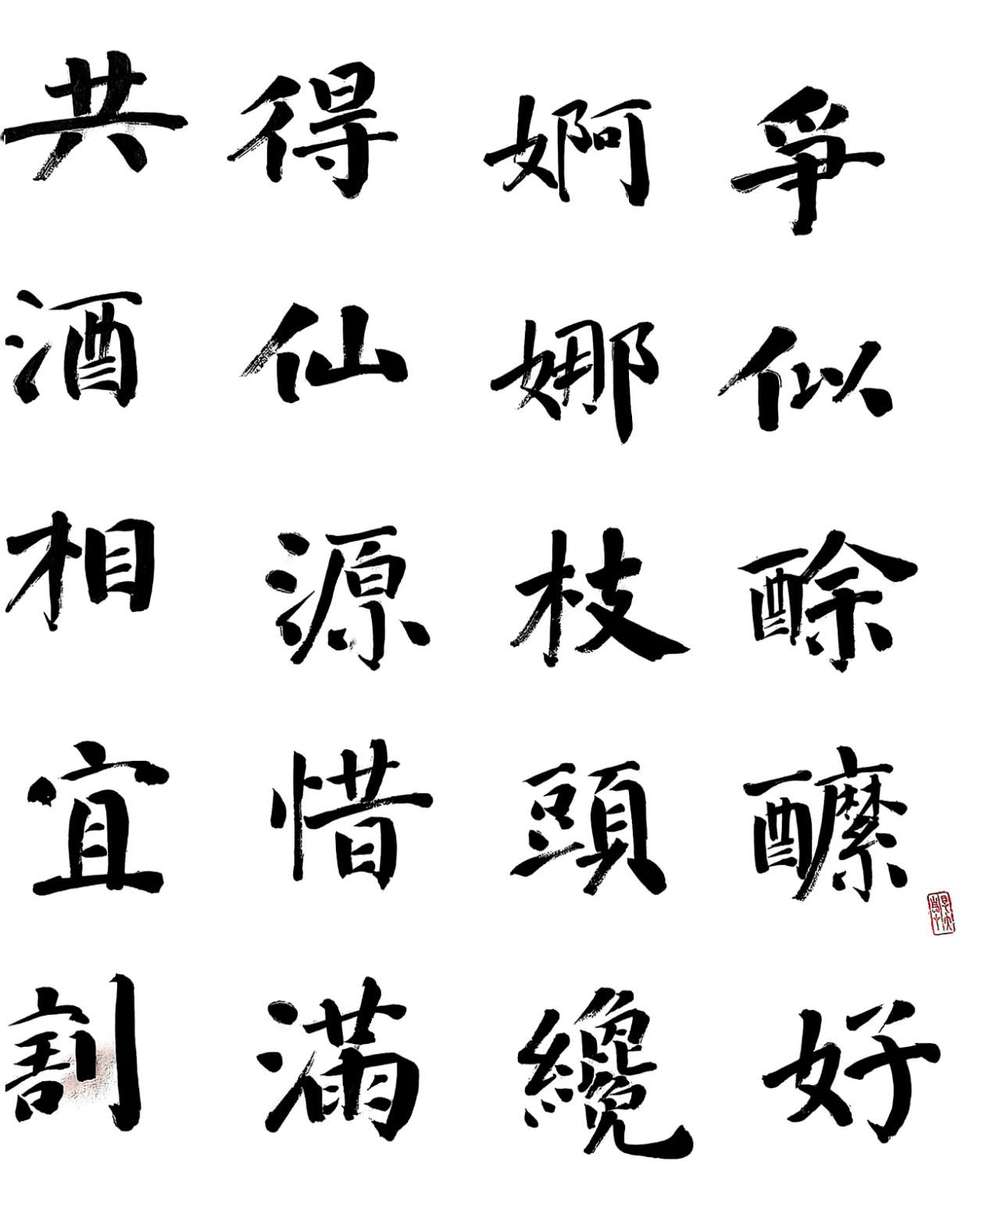 爭似酴醿好
婀娜枝頭纔
得仙源惜滿
共酒相宜割